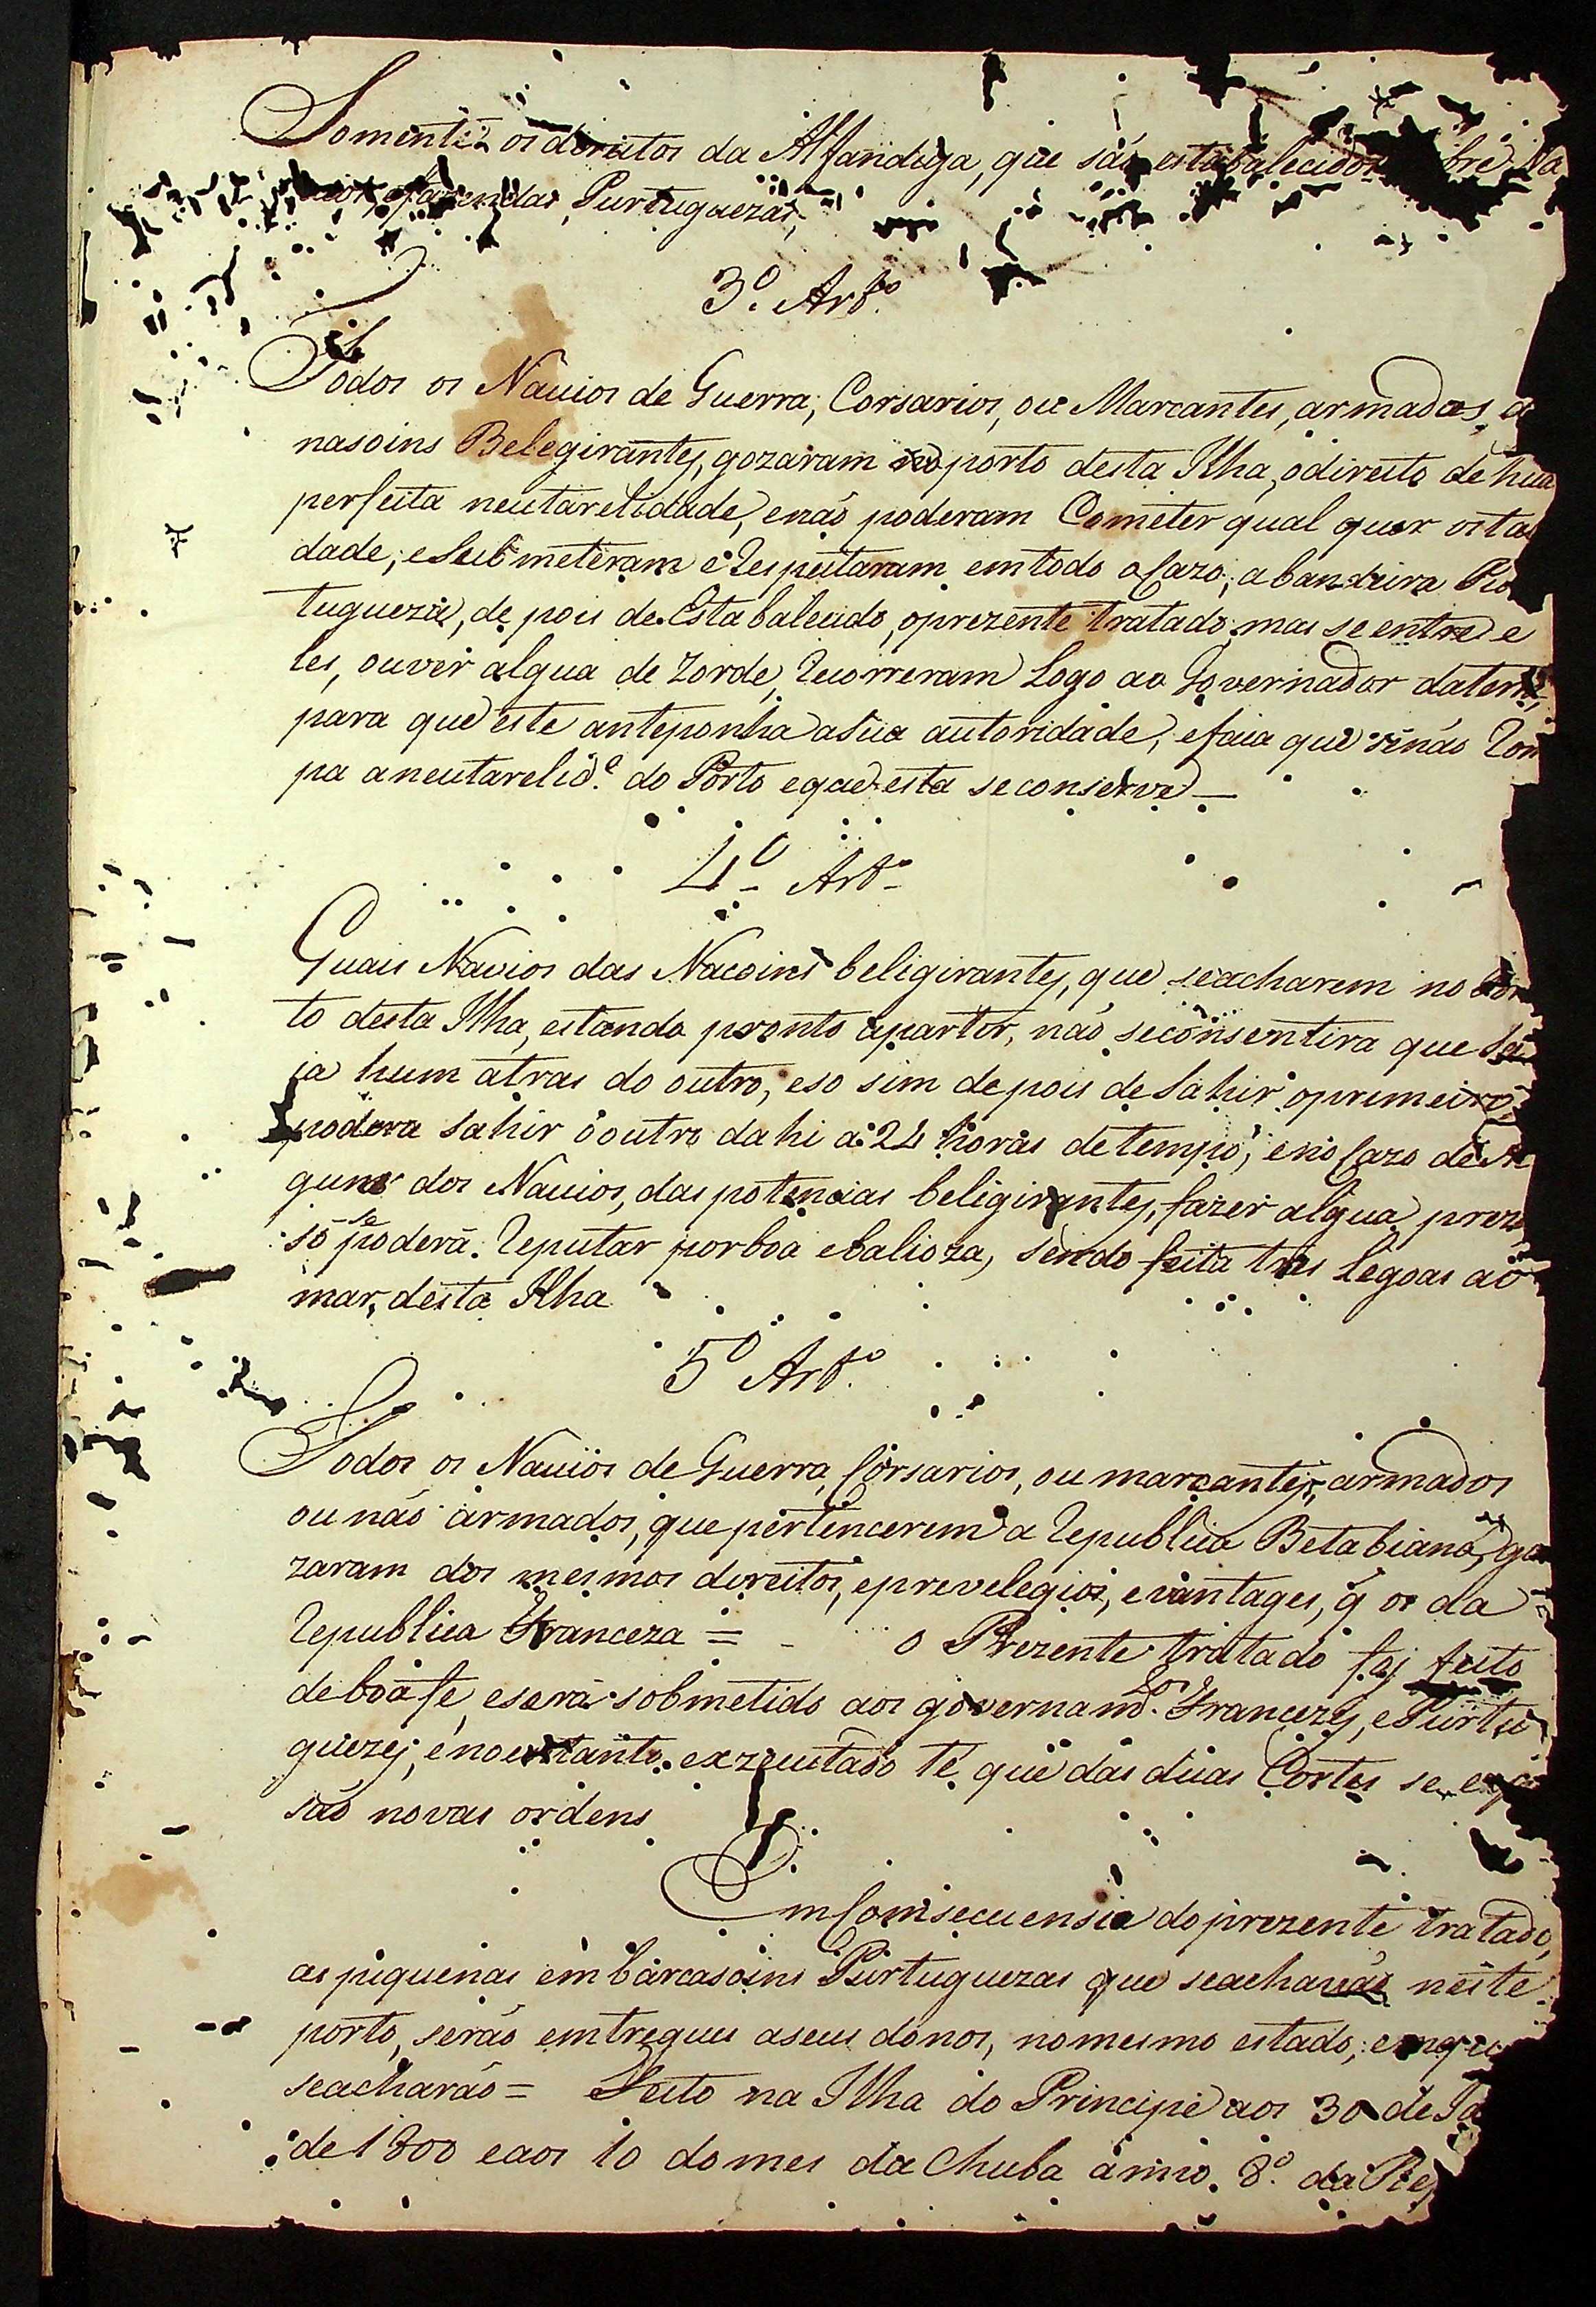 Somente os dereitos da Alfandega, que são estabalecidos
fazendas Purtuguezas,
3º. Artº.
Todos os Navios de Guerra, Corsarios, ou Marcantes, armados,
nasoins Belegirantes, gozaram no porto desta Ilha, o direito de hua
perfeita neutarelidade, enáo poderam Cometer qual quer
dade; eSubmeteram eRespeitaram emtodo oCazo, abandeira
tugueza, de pois de Estabalecido, oprezente tratado; mas se entre e
les, ouver algua de Zorde, Recorreram Logo ao Governador
para que este anteponha asua autoridade, efaia que senáo Rom
pa aneutarelidᵉ. do Porto eque esta seconserve —
4º Artº
Quais Navios das Nacoins beligirantes, que seacharem no Por
to desta Ilha, estando pronto apartir, náo seconsentira que Sa
ia hum atras do outro, eso sim de pois de Sahir oprimeiro,
podera Sahir ooutro dahi a 24 horas de tempo; eno Cazo de Al
guns dos Navios, das potencias beligirantes, fazer algua preza
só se poderá Reputar porboa eBalioza, sendo feita tres Legoas ao
mar, desta Ilha
5º Artº.
Todos os Navios de Guerra, Corsarios, ou marcantes, armados
ou náo armados, que pertencerem a Republica Betabiana, go
zaram dos mesmos dereitos, eprevelegios, evantages, q̃ os da
Republica Franceza = - o Prezente tratado foj feito
de boa fe, eserá sobmetido aos governamᵗᵒˢ. Francezes, ePurtu
guezes, enoentanto exzecutado té que das duas Cortes se
sáo novas ordens
EmComsecuensia doprezente tratado,
as piquenas embarcasoins Purtuguezas que seacharáo neste
porto, seráo emtregues aseus donos, nomesmo estado, emque
seacharáo = Feito na Ilha do Principe aos 30 de Ja
de 1800 eaos 10 domes da Chuba anno. 8º. da Re